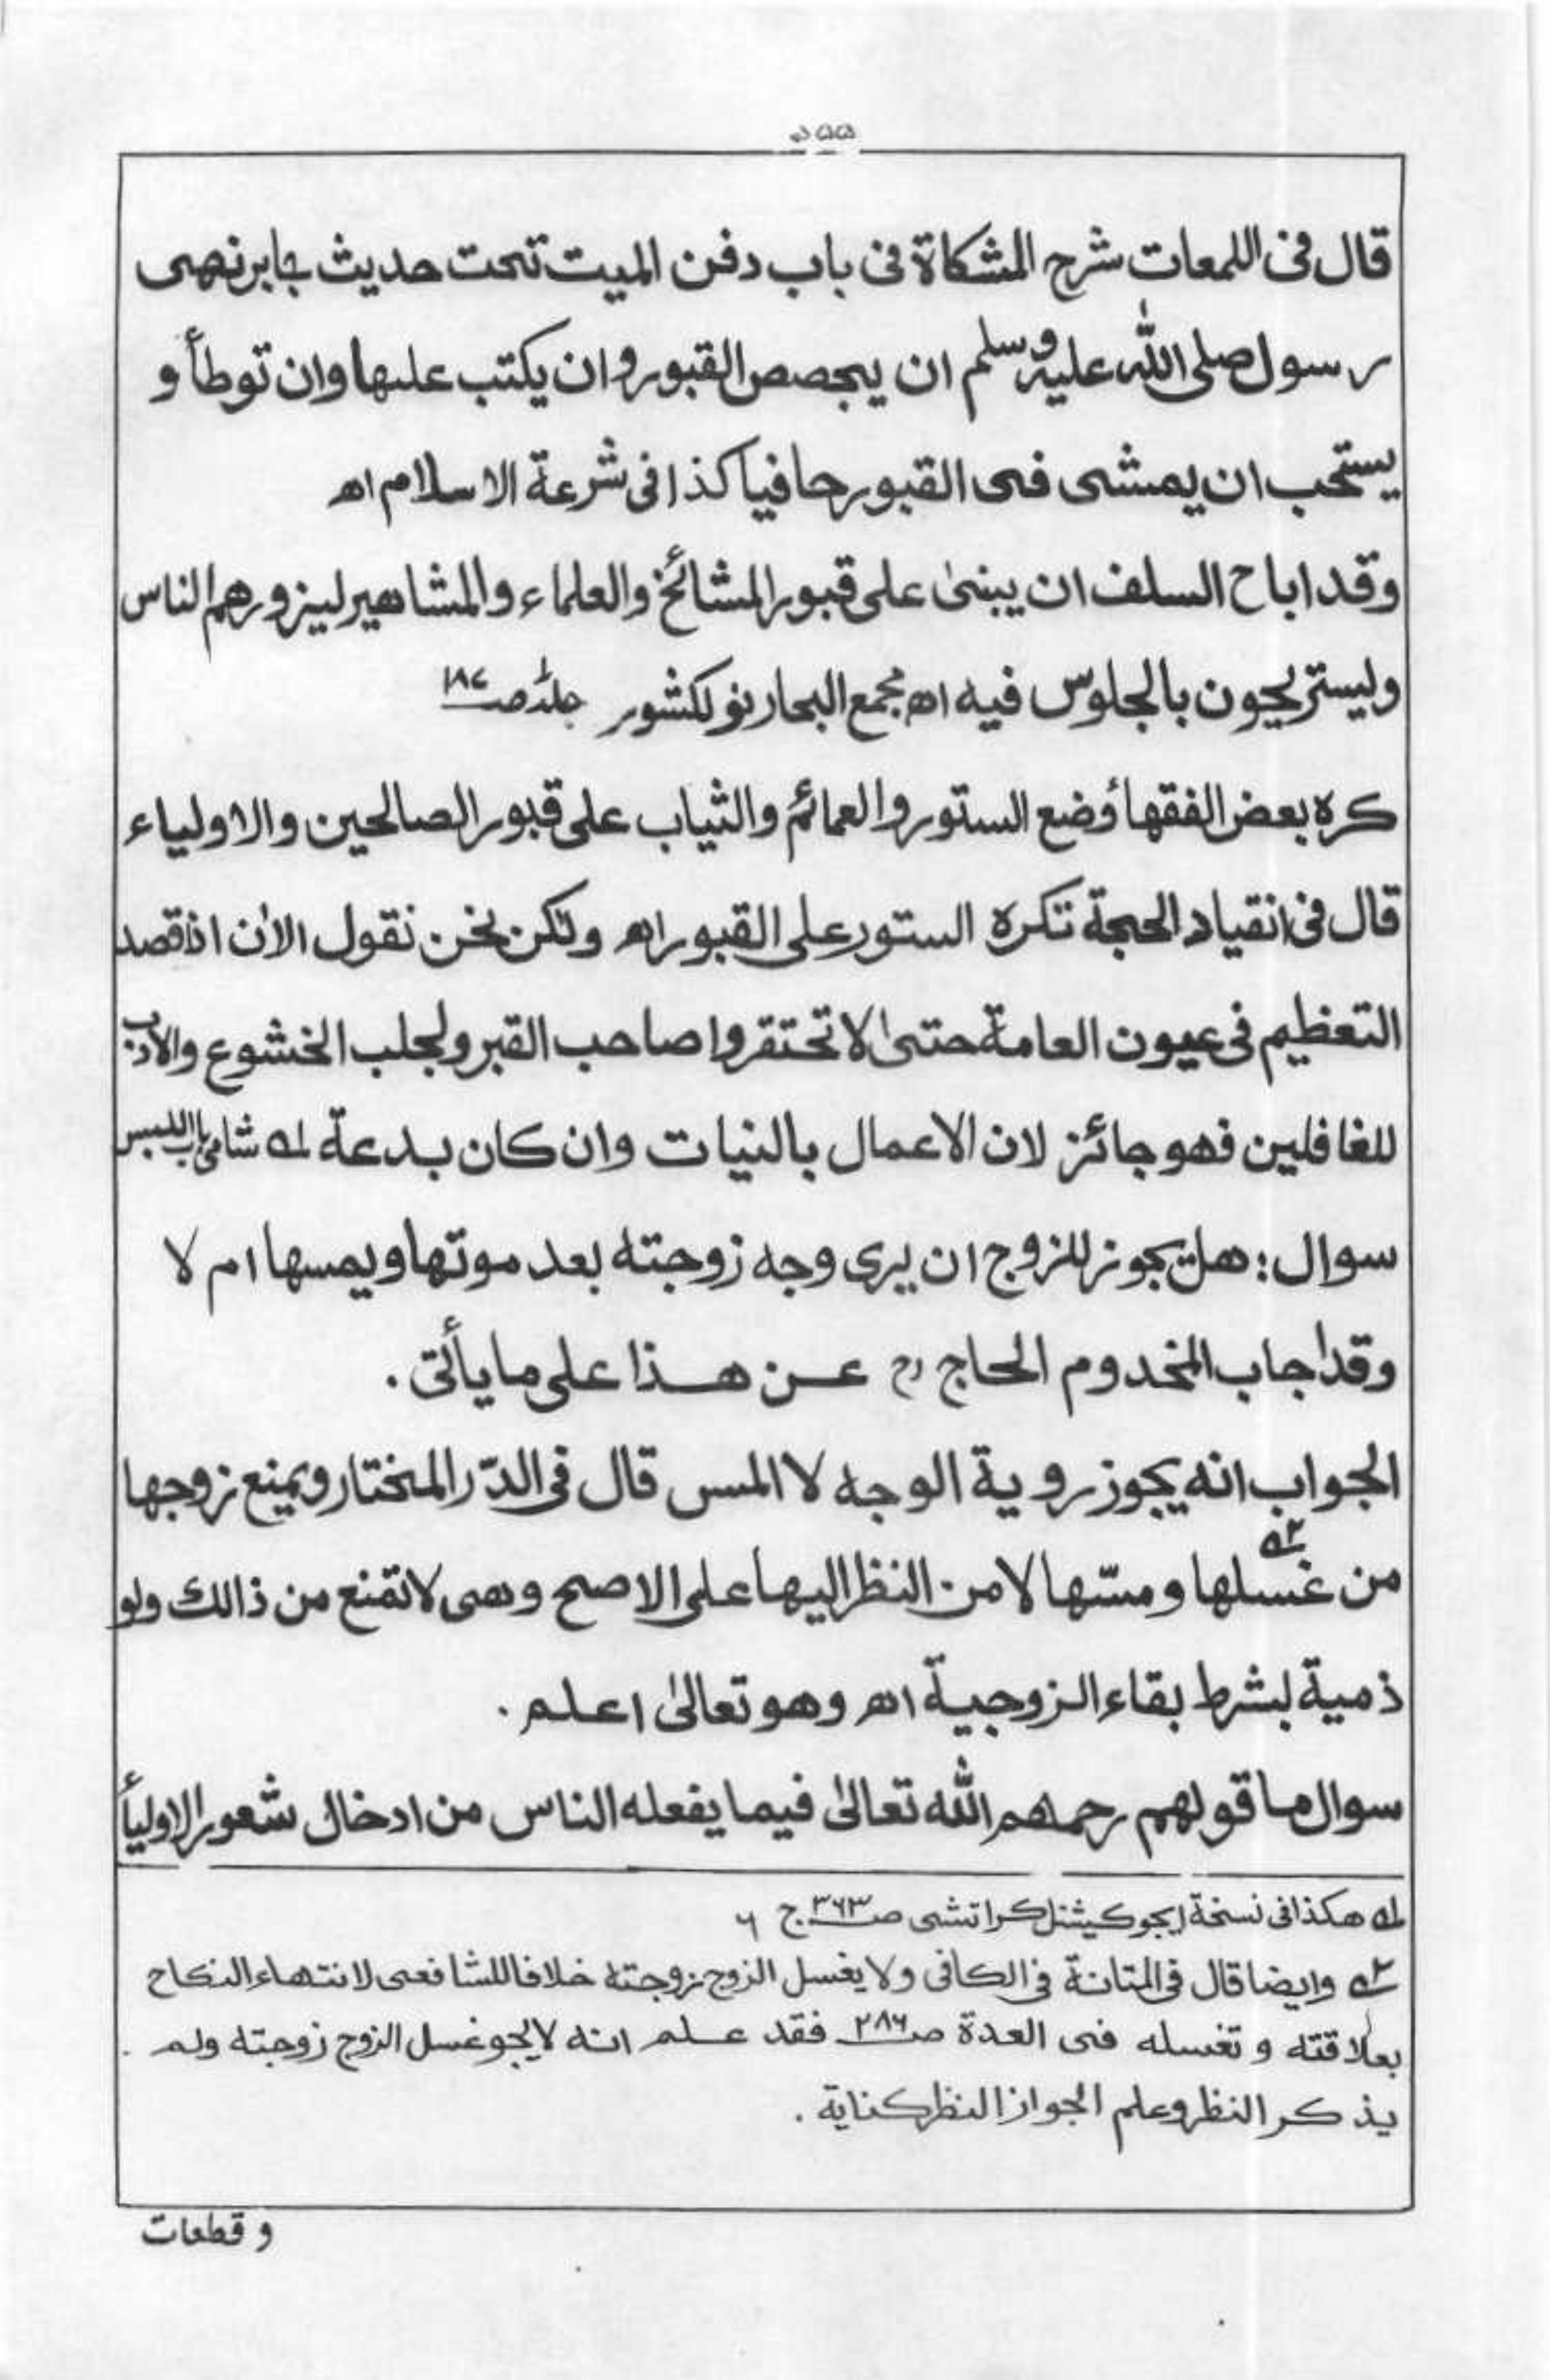 قال فى اللمعات شرح المشكاة فى باب دفن الميت تحت حديث جابر نهى
رسول صلى الله عليه وسلم ان يجصص القبور وان يكتب عليها وان توطأ و
يستحب ان يمشى فى القبور حافيا كذا فى شرعة الاسلام اھ
وقد اباح السلف ان يبنىٰ على قبور المشائخ والعلماء والمشاهير ليزورهم الناس
وليستريحون بالجلوس فيه اھ مجمع البحار نولكشور جلد صـ ١٨٧
كره بعض الفقهاء وضع الستور والعمائم والثياب على قبور الصالحين والاولياء
قال فى انقياد الحجة تكره الستور على القبور اھ ولكن نحن نقول الاٰن اذا قصد
التعظيم فى عيون العامة حتىٰ لا تحتقروا صاحب القبر ولجلب الخشوع والادب
للغافلين فهو جائز لان الاعمال بالنيات وان كان بدعة لـه شامى باب اللبس
سوال: هل يجوز للزوج ان يرى وجه زوجته بعد موتها ويمسها ام لا
وقد اجاب المخدوم الحاج رح عن هذا على ما يأتى .
الجواب انه يجوز روية الوجه لا المس قال فى الدّر المختار ويمنع زوجها
من غسلها ومسّها لا من النظر اليها على الاصح وهى لا تمنع من ذالك ولو
ذمية بشرط بقاء الزوجية اھ وهو تعالىٰ اعلم .
سوال ما قولهم رحمهم الله تعالىٰ فيما يفعله الناس من ادخال شعور الاوليأ
لـه هكذا فى نسخة ايجوكيشنل كراتشى صـ ٣٦٣ ج ٦
٢ـه وايضا قال فى المتانة فى الكافى ولا يغسل الزوج زوجته خلافا للشافعى لانتهاء النكاح
بعلاقته و تغسله فى العدة صـ ٢٨٦ فقد علم انه لا يجو غسل الزوج زوجته ولم .
يذكر النظر وعلم الجواز النظر كناية .
و قطعات